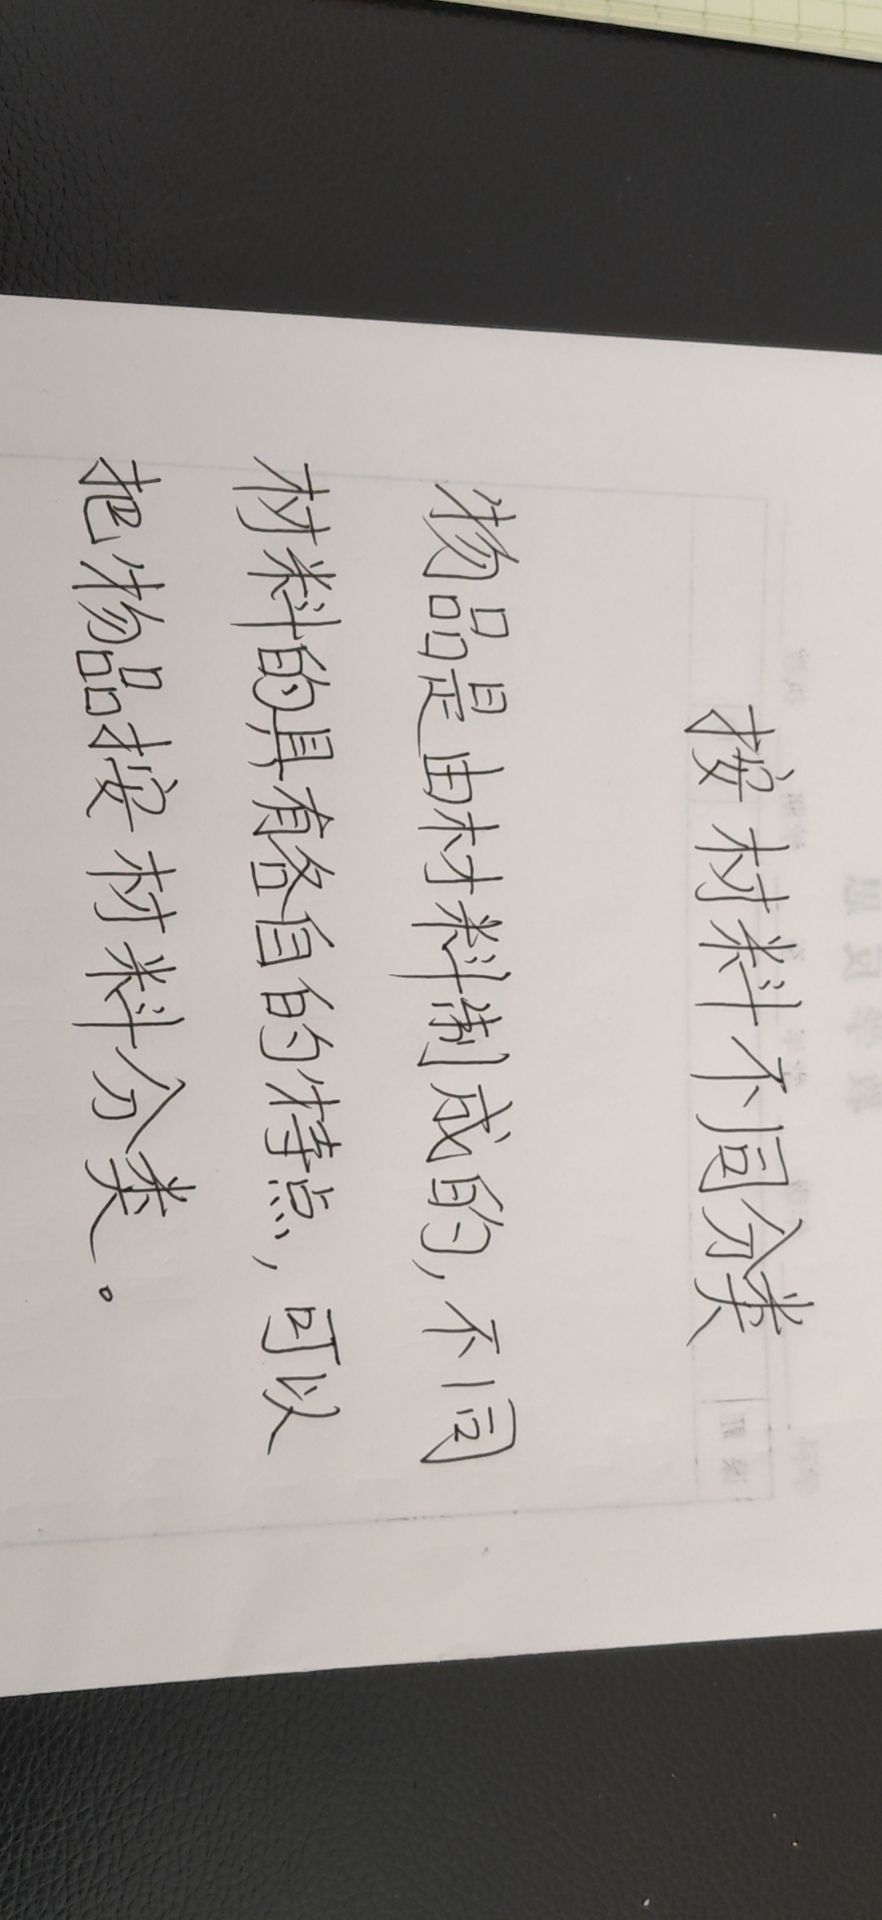 按材料不同分类
物品是由材料制成的,不同
材料的具有各自的特点,可以
把物品按材料分类。